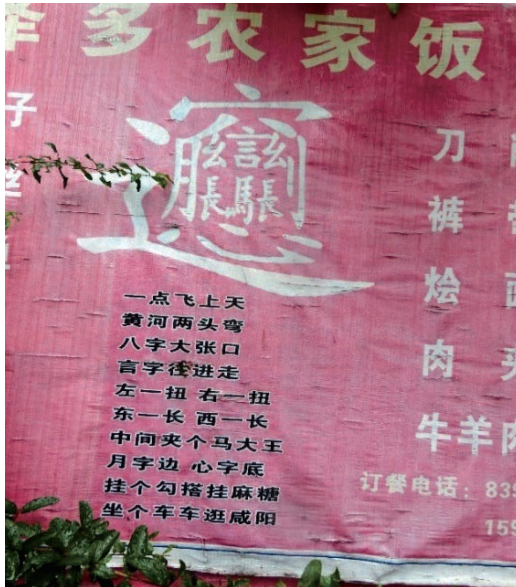 多农家饭
子
𰻞
一点飞上天
黄河两头弯
八字大张口
言字往进走
左一扭 右一扭
东一长 西一长
中间夹个马大王
月字边 心字底
挂个勾搭挂麻糖
坐个车车逛咸阳
刀
裤
烩
肉
牛羊肉
订餐电话：839
159